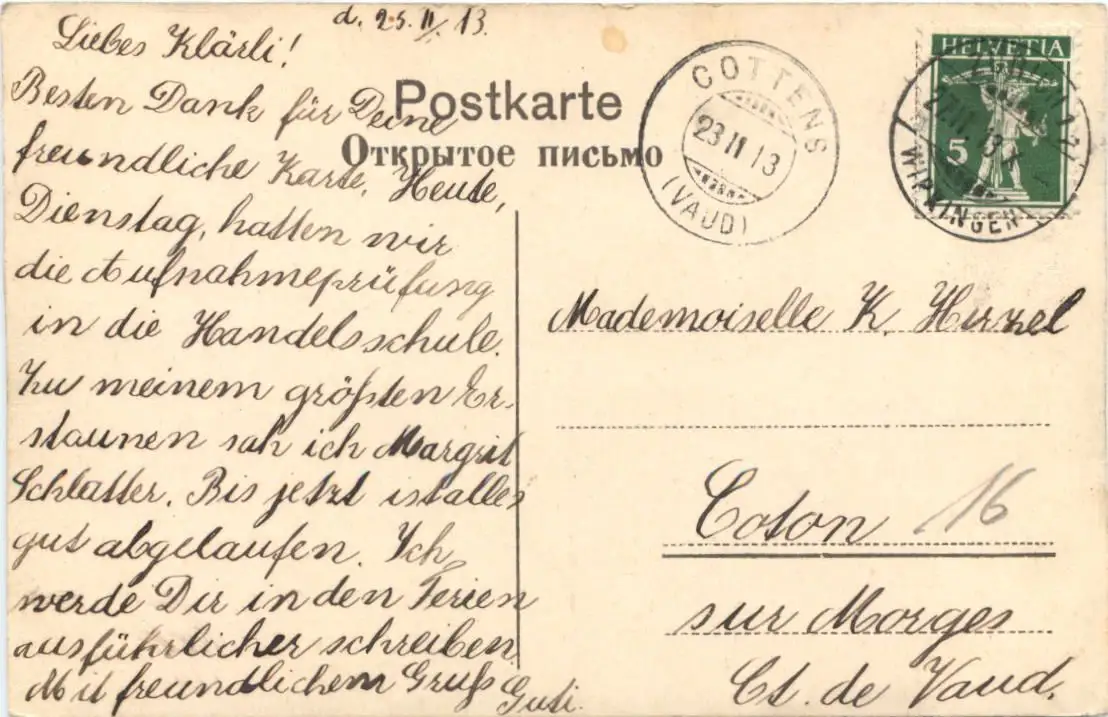 d. 25. II. 13.
Liebes Klärli!
Besten Dank für Deine
freundliche Karte. Heute,
Dienstag, hatten wir
die Aufnahmeprüfung
in die Handelsschule.
Zu meinem größten Er-
staunen sah ich Margrit
Schlatter. Bis jetzt ist alles
gut abgelaufen. Ich
werde Dir in den Ferien
ausführlicher schreiben.
Mit freundlichem Gruß
Gusti.
Postkarte
Открытое письмо
COTTENS
23 II 13
(VAUD)
HELVETIA
5
WIPKINGEN
Mademoiselle K. Hirzel
Coton
16
sur Morges
Ct. de Vaud.